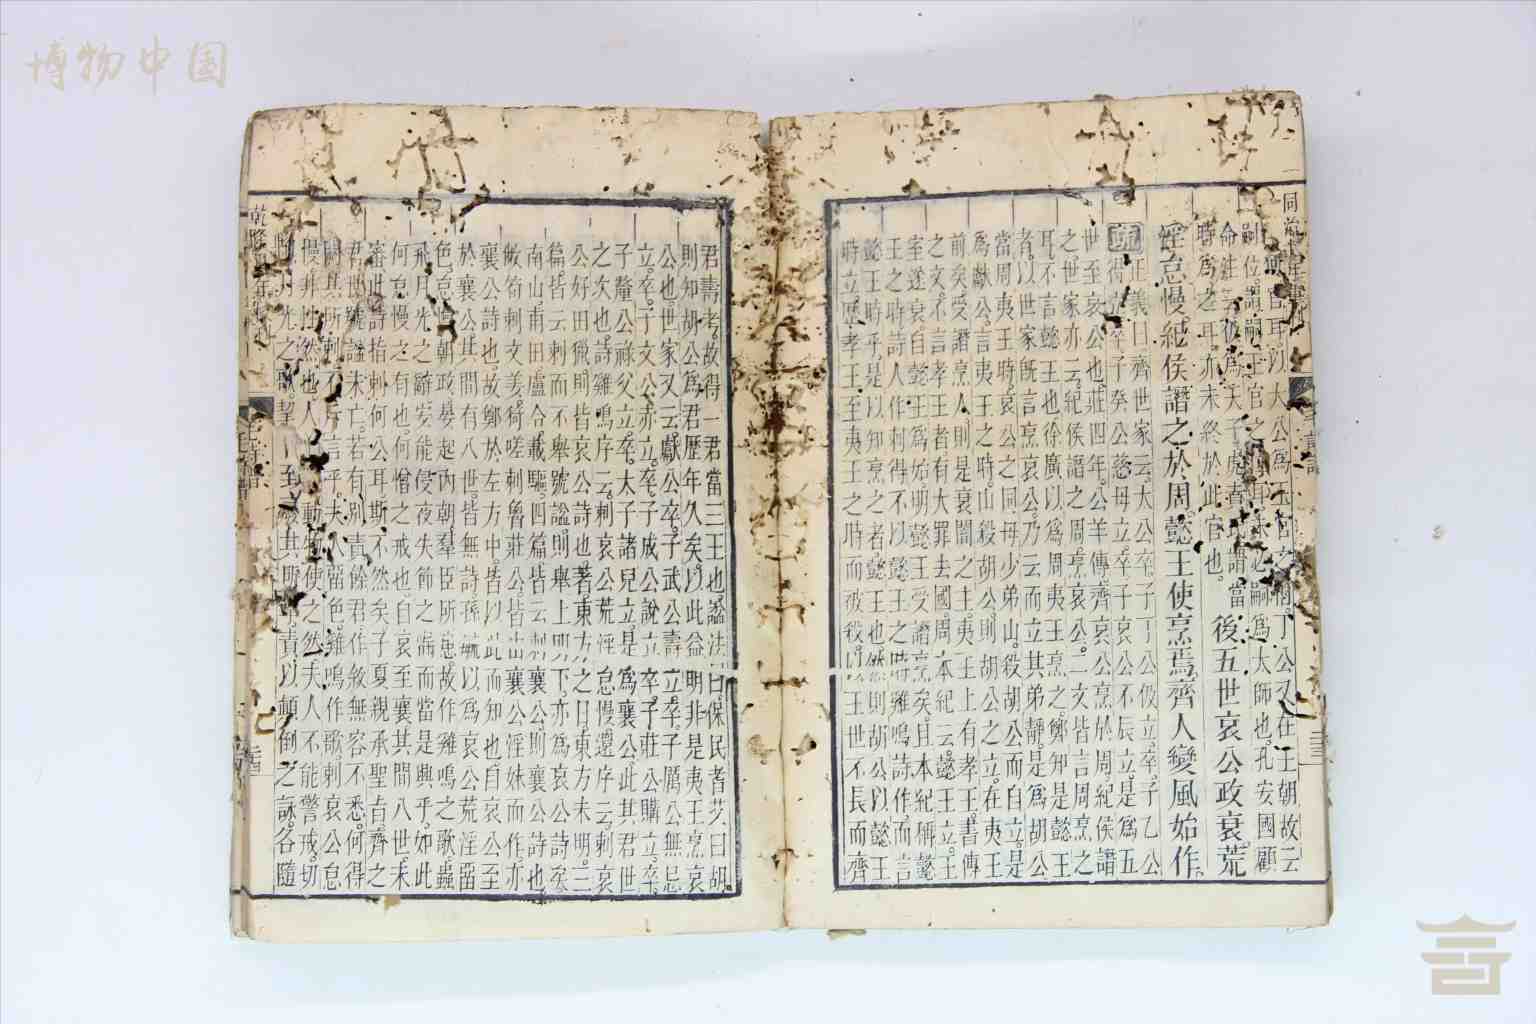 嗣官耳以大公為王官之伯丁公又在王朝故云
嗣位謂嗣王官之耳未必嗣為太師也孔安國顧
命注云彼為天子虎賁氏謂當
時為之耳亦未終於此官也。
後五世哀公政衰荒
淫怠慢紀侯譖之於周懿王使烹焉齊人變風始作。
疏 正義曰齊世家云太公卒子丁公伋立卒子乙公
得立卒子癸公慈母立卒子哀公不辰立是為五
世至哀公也莊四年公羊傳齊哀公烹於周紀侯譖
之世家亦云紀侯譖之周烹哀公二文皆言周烹之
耳不言懿王也徐廣以為周夷王烹之鄭知是懿王
者以世家既言烹哀公乃云而立其弟靜是為胡公
當周夷王時哀公之同母少弟山殺胡公而自立是
為獻公言夷王之時山殺胡公則胡公之立在夷王
前矣受譖烹人則是衰闇之主夷王上有孝王書傳
之文不言孝王者有大罪去國周本紀云懿王立王
室遂衰自懿王為始明懿王受譖烹矣且本紀稱懿
王之時詩人作刺得不以懿王之時雞鳴詩作而言
懿王時乎是以知烹之者懿王也然則胡公以懿王
時立歷孝王至夷王之時而被殺以王世不長而齊
君壽考故得一君當三王也謚法曰保民耆艾曰胡
則知胡公為君歷年久矣以此益明非是夷王烹哀
公也世家又云獻公卒子武公壽立卒子厲公無忌
立卒子文公赤立卒子成公說立卒子莊公購立卒
子釐公祿父立卒太子諸兒立是為襄公此其君世
之次也詩雞鳴序云刺哀公荒淫怠慢還序云刺哀
公好田獵則皆哀公詩也著東方之日東方未明三
篇皆云刺而不舉號謚則舉上明下亦為哀公詩矣
南山甫田盧令載驅四篇皆云刺襄公則襄公詩也
敝笱刺文姜猗嗟刺魯莊公皆由襄公淫妹而作亦
襄公詩也故鄭於左方中皆以此而知也自哀公至
於襄公其間有八世皆無詩孫毓以為哀公荒淫留
色怠慢朝政晏起內朝羣臣所患故作雞鳴之歌蟲
飛月光之辭安能侵夜失節之漏而當是興乎如此
何怠慢之有也何憎之戒也自哀至襄其間八世未
審此詩指刺何公耳斯不然矣子夏親承聖旨齊之
君世號謚未亡若有別責餘君作敘無容不悉何得
闕其所刺不斥言乎夫人留色雞鳴作歌刺哀公怠
慢非性然也人動物使之然夫人不能警戒切
月光之歌挈至其責以顛倒之詠各隨
乾隆
博物中国